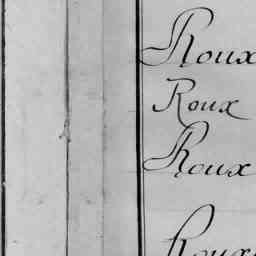 Roux
Roux
Roux
Roux